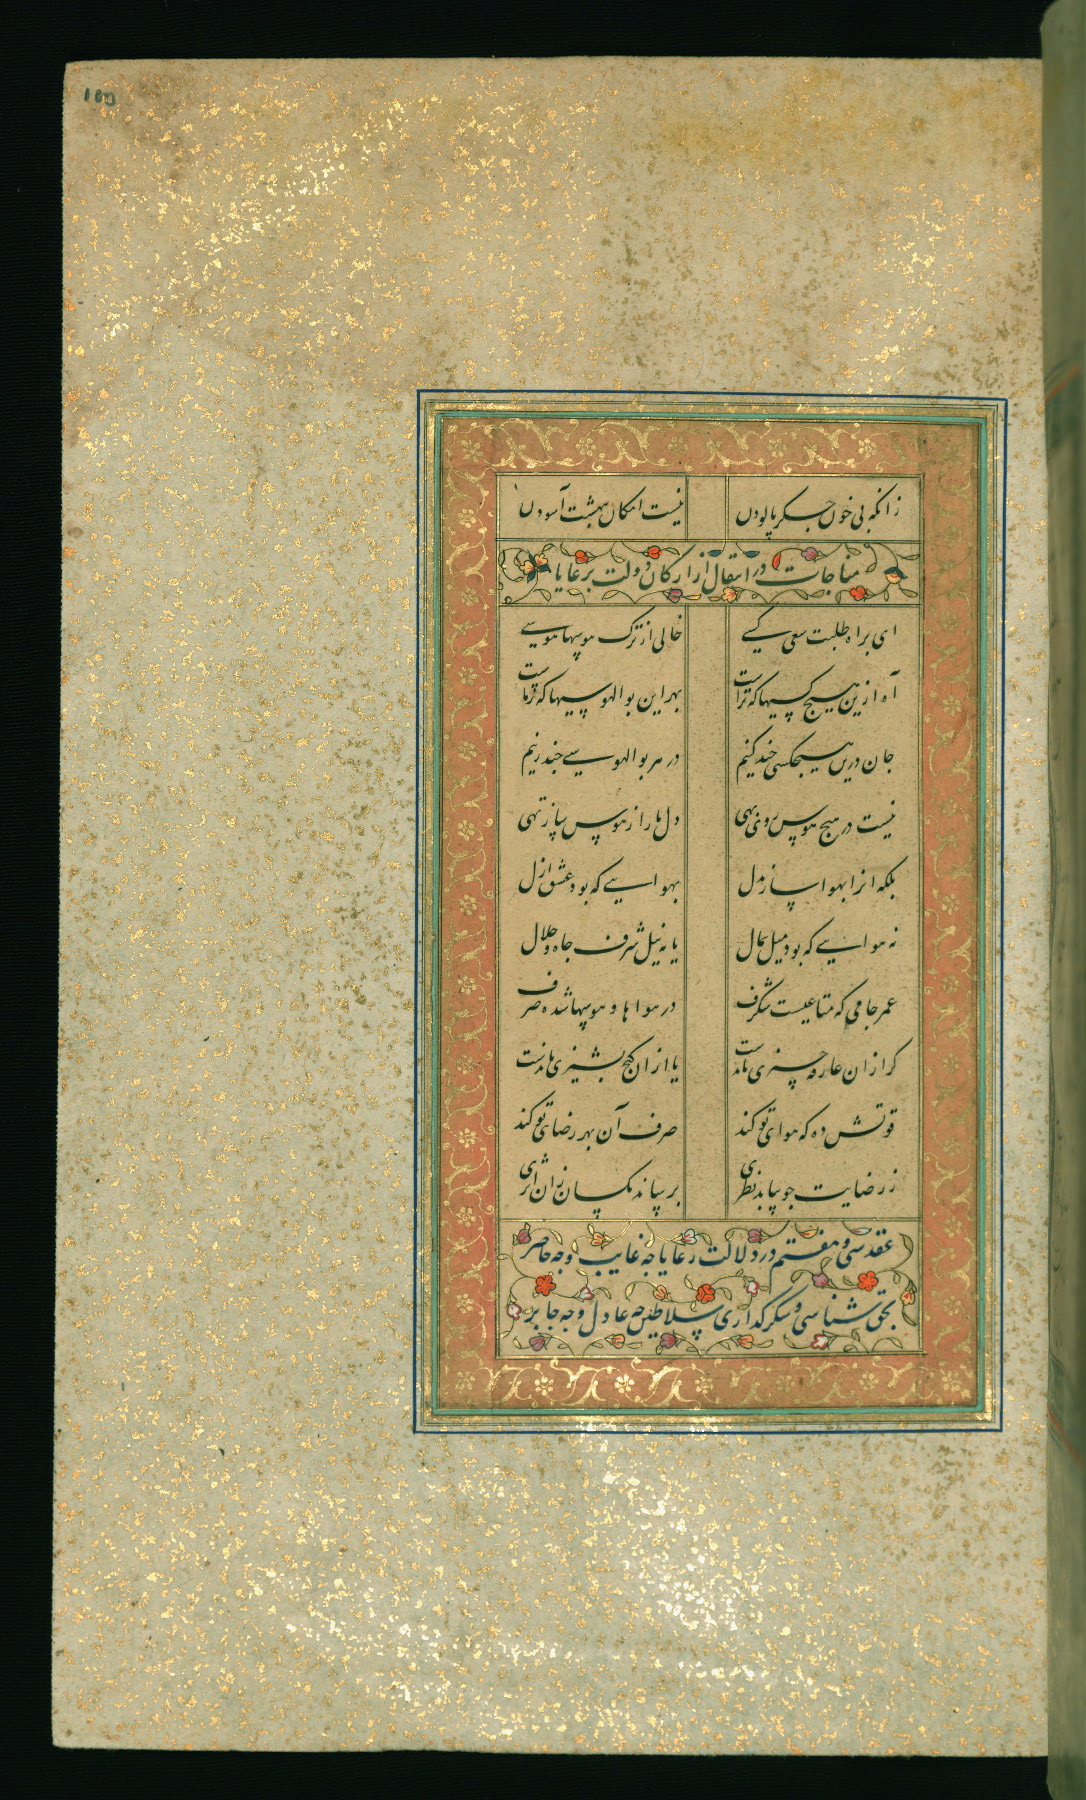 ۱۵۵
زانکه بی خون جگر پالودن نیست امکان بهشت آسودن
مناجات در انتقال از ارکان دولت بر عایا
ای براه طلبت سعی کسی خالی از ترک هوسها هوسی
آه ازین هیچ کسیها که تراست بهر این بو الهوسیها که تراست
جان درین هیچکسی چند کنیم در هر بو الهوسی چند زنیم
نیست در هیچ هوس روی بهی دل ما را ز هوس ساز تهی
بلکه انرا بهوا ساز بدل بهوایی که بود عشق ازل
نه هوایی که بود میل بمال یا به نیل شرف جاه و جلال
عمر جامی که متاعیست شگرف در هواها و هوسها شده صرف
گر ازان عارفه چیزی ماندست یا ازان گنج پشیزی ماندست
قوتش ده که هوای تو کند صرف آن بهر رضای تو کند
ز رضایت چو بیابد نظری برساند بکسان زان اثری
عقد سی و هفتم در دلالت رعایا چه غایب و چه حاضر
بحق شناسی و شکرگذاری سلاطین چه عادل و چه جابر